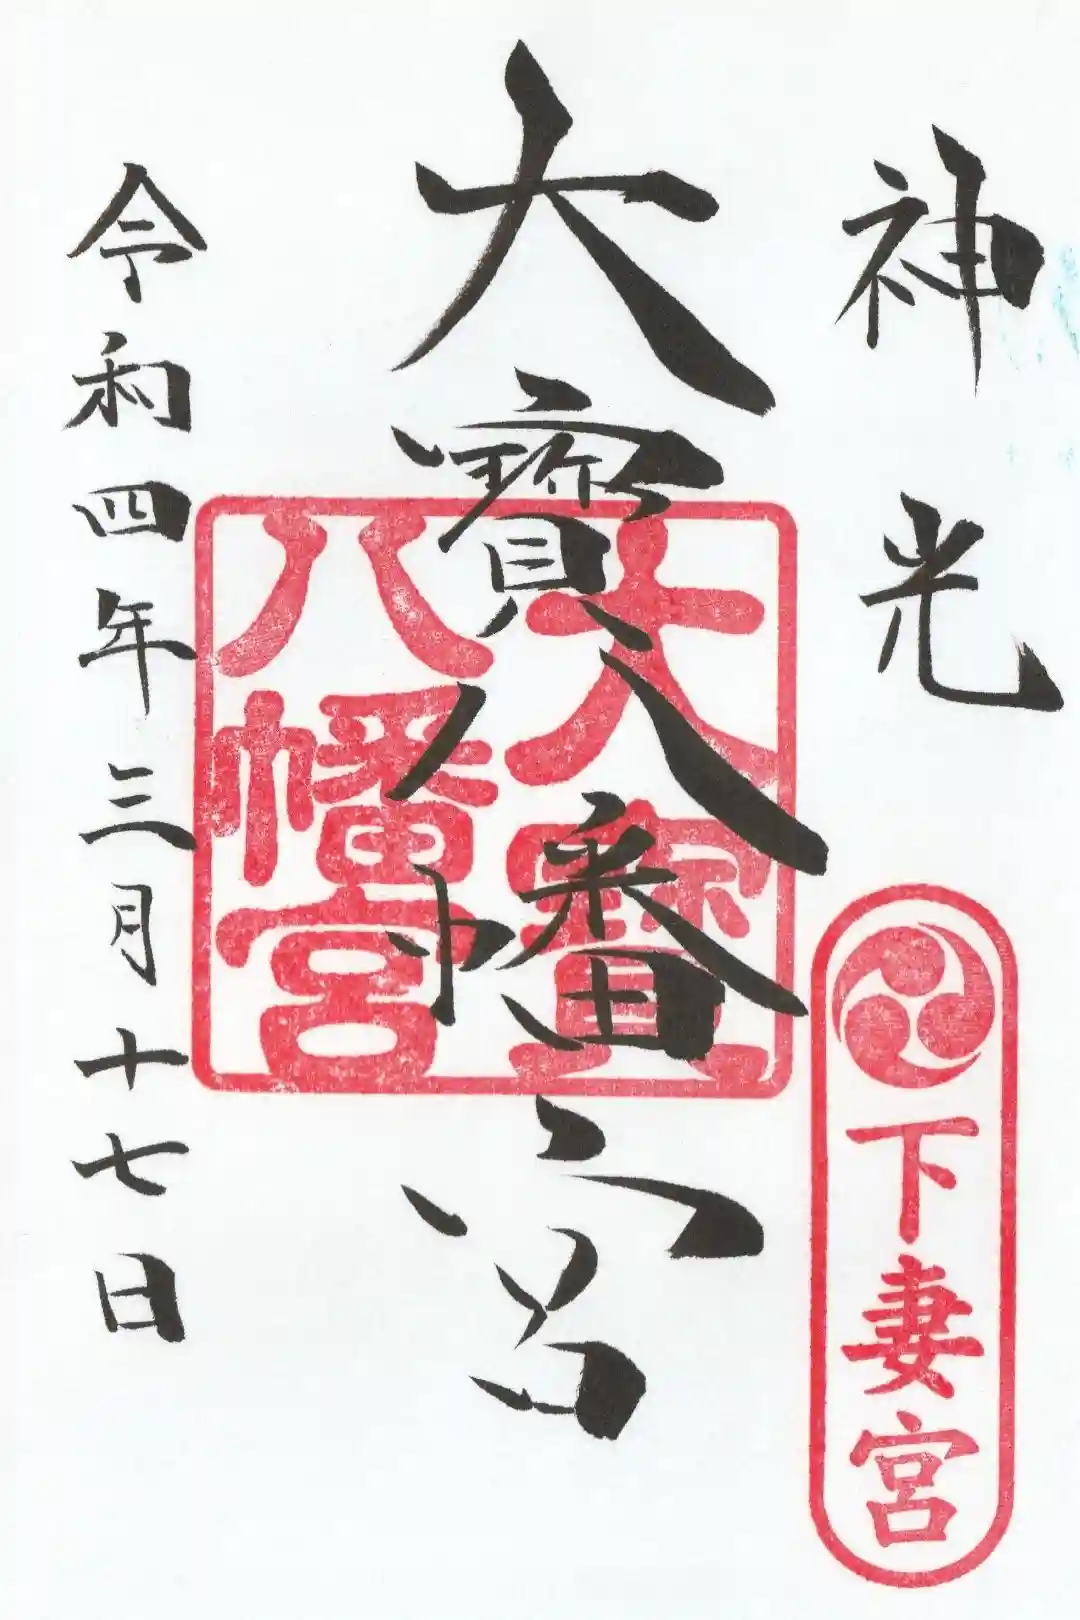 神光
下妻宮
大寳八幡宮
大寳八幡宮
令和四年三月十七日